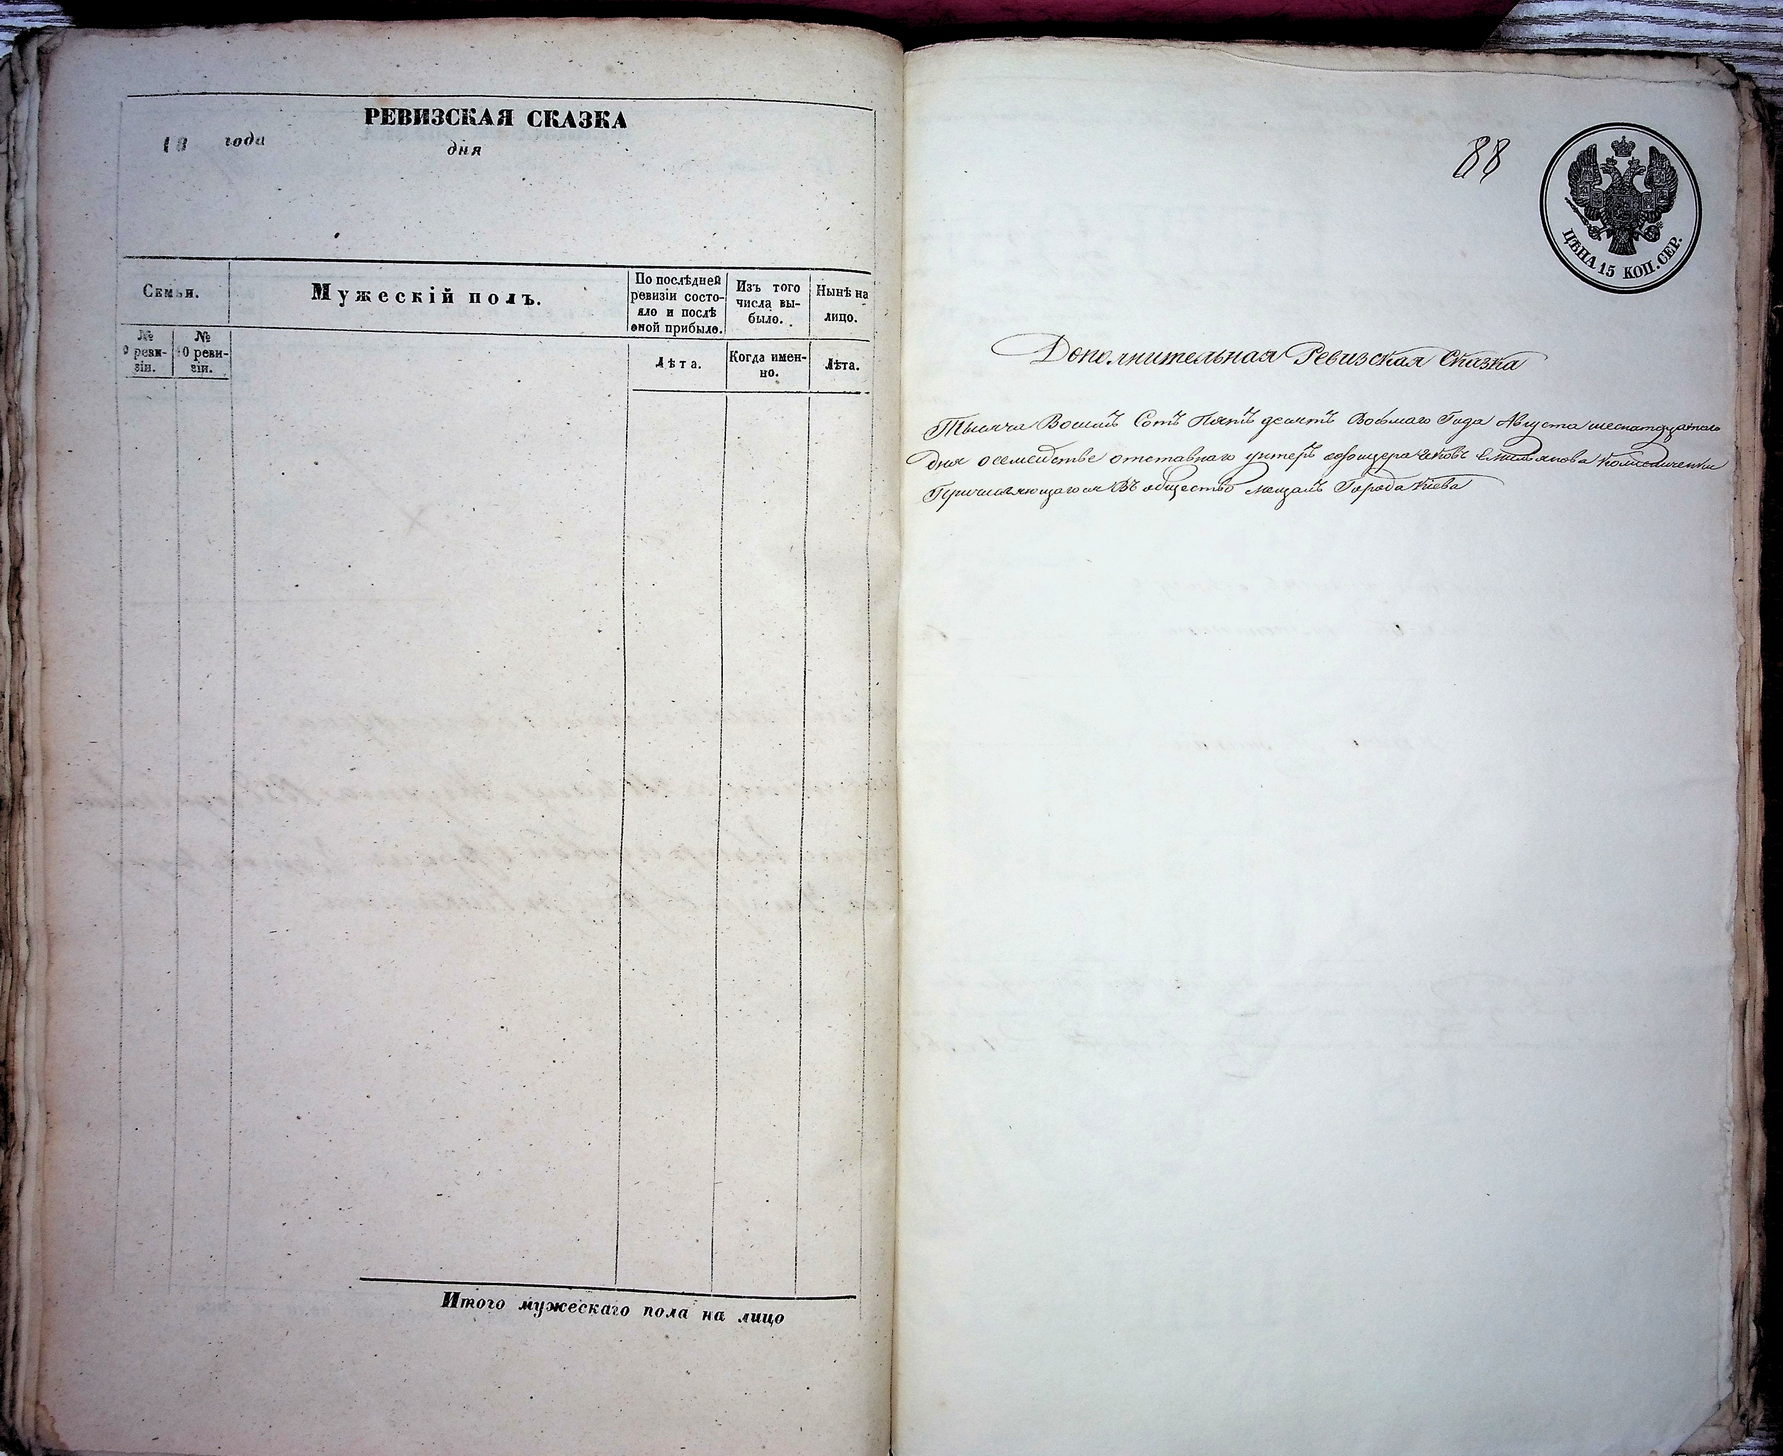 РЕВИЗСКАЯ СКАЗКА
18 года дня
Семьи.
Мужескій полъ.
По послѣдней
ревизіи состо-
яло и послѣ
оной прибыло.
Изъ того
числа вы-
было.
Нынѣ на
лицо.
№
реви-
зіи.
№
10 реви-
зіи.
Лѣта.
Когда имен-
но.
Лѣта.
Итого мужескаго пола на лицо
88
ЦѢНА 15 КОП. СЕР.
Дополнительная Ревизская Сказка
Тысяча Восемъ Сотъ Пятъ десятъ Восьмаго Года Августа шеснатцатаго
дня о семействе отставнаго унтеръ офицера Емельянова
Причисляющагося Въ общество мещанъ Города Киева